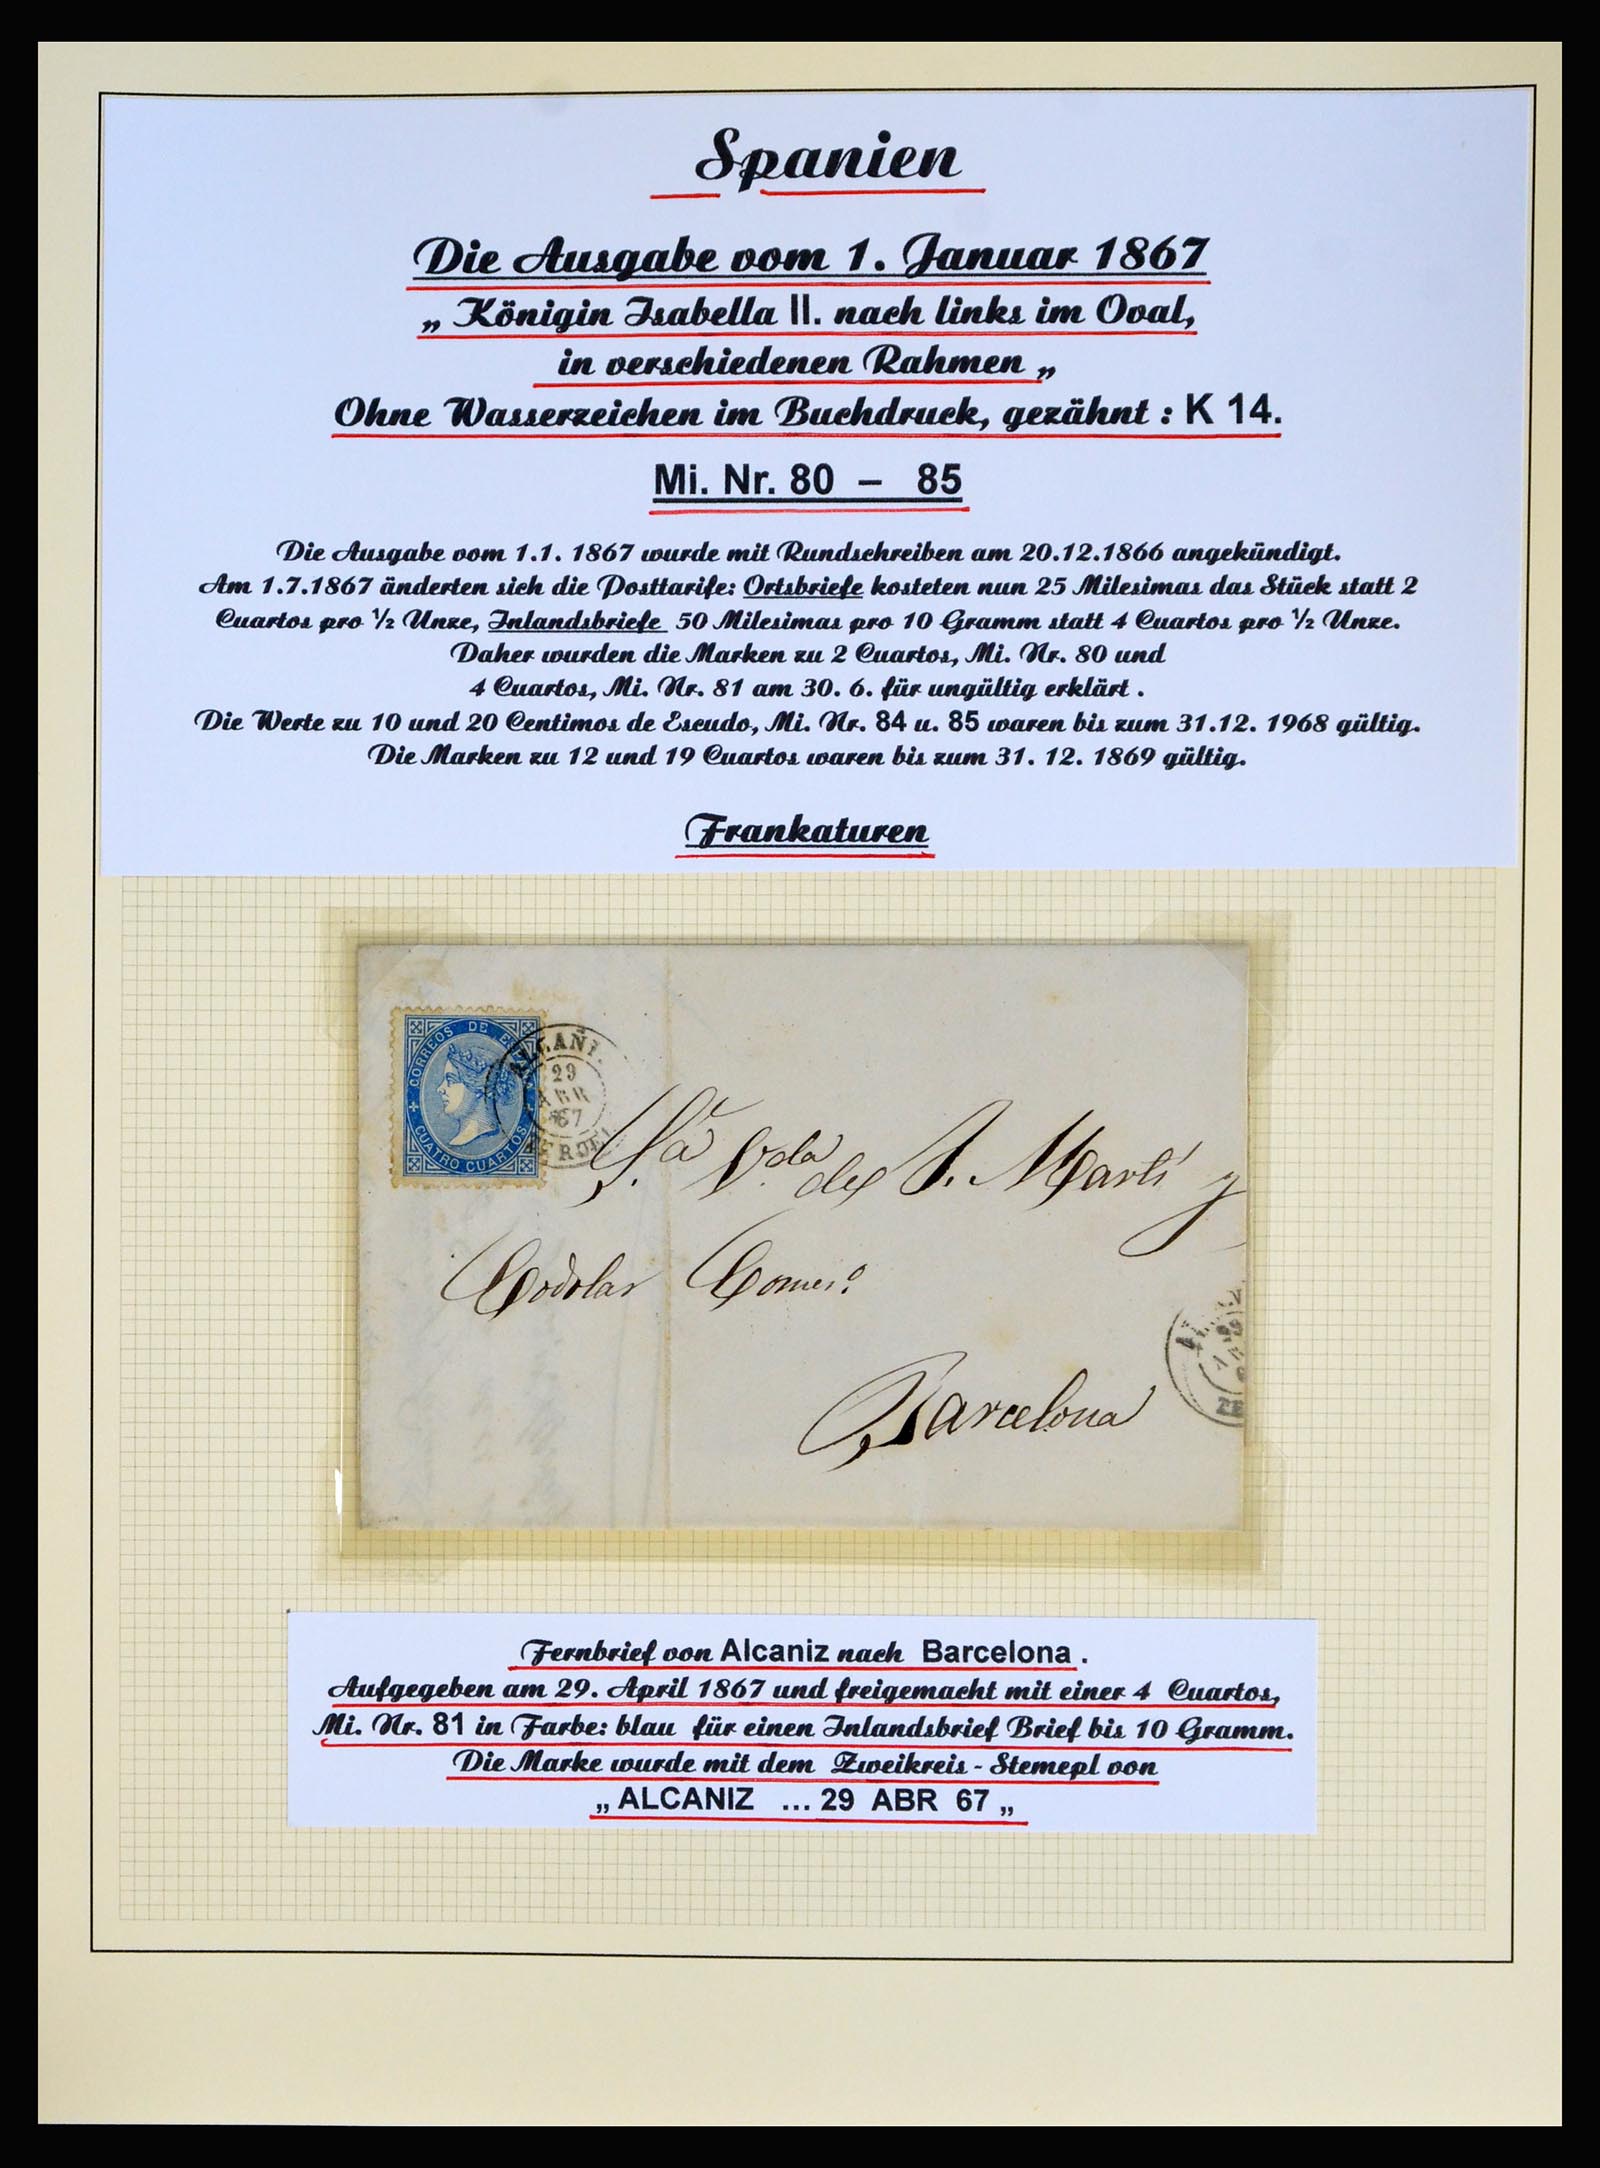 Spanien
Die Ausgabe vom 1. Januar 1867
„ Königin Isabella II. nach links im Oval,
in verschiedenen Rahmen „
Ohne Wasserzeichen im Buchdruck, gezähnt : K 14.
Mi. Nr. 80 – 85
Die Ausgabe vom 1.1. 1867 wurde mit Rundschreiben am 20.12.1866 angekündigt.
Am 1.7.1867 änderten sich die Posttarife: Ortsbriefe kosteten nun 25 Milesimas das Stück statt 2
Cuartos pro ½ Unze, Inlandsbriefe 50 Milesimas pro 10 Gramm statt 4 Cuartos pro ½ Unze.
Daher wurden die Marken zu 2 Cuartos, Mi. Nr. 80 und
4 Cuartos, Mi. Nr. 81 am 30. 6. für ungültig erklärt .
Die Werte zu 10 und 20 Centimos de Escudo, Mi. Nr. 84 u. 85 waren bis zum 31.12. 1968 gültig.
Die Marken zu 12 und 19 Cuartos waren bis zum 31. 12. 1869 gültig.
Frankaturen
CORREOS DE
CUATRO CUARTOS
29
ABR
67
Sra. Vda. de J. Martí y
Codolar Comerº
Barcelona
Fernbrief von Alcaniz nach Barcelona .
Aufgegeben am 29. April 1867 und freigemacht mit einer 4 Cuartos,
Mi. Nr. 81 in Farbe: blau für einen Inlandsbrief Brief bis 10 Gramm.
Die Marke wurde mit dem Zweikreis - Stemepl von
„ ALCANIZ ... 29 ABR 67 „